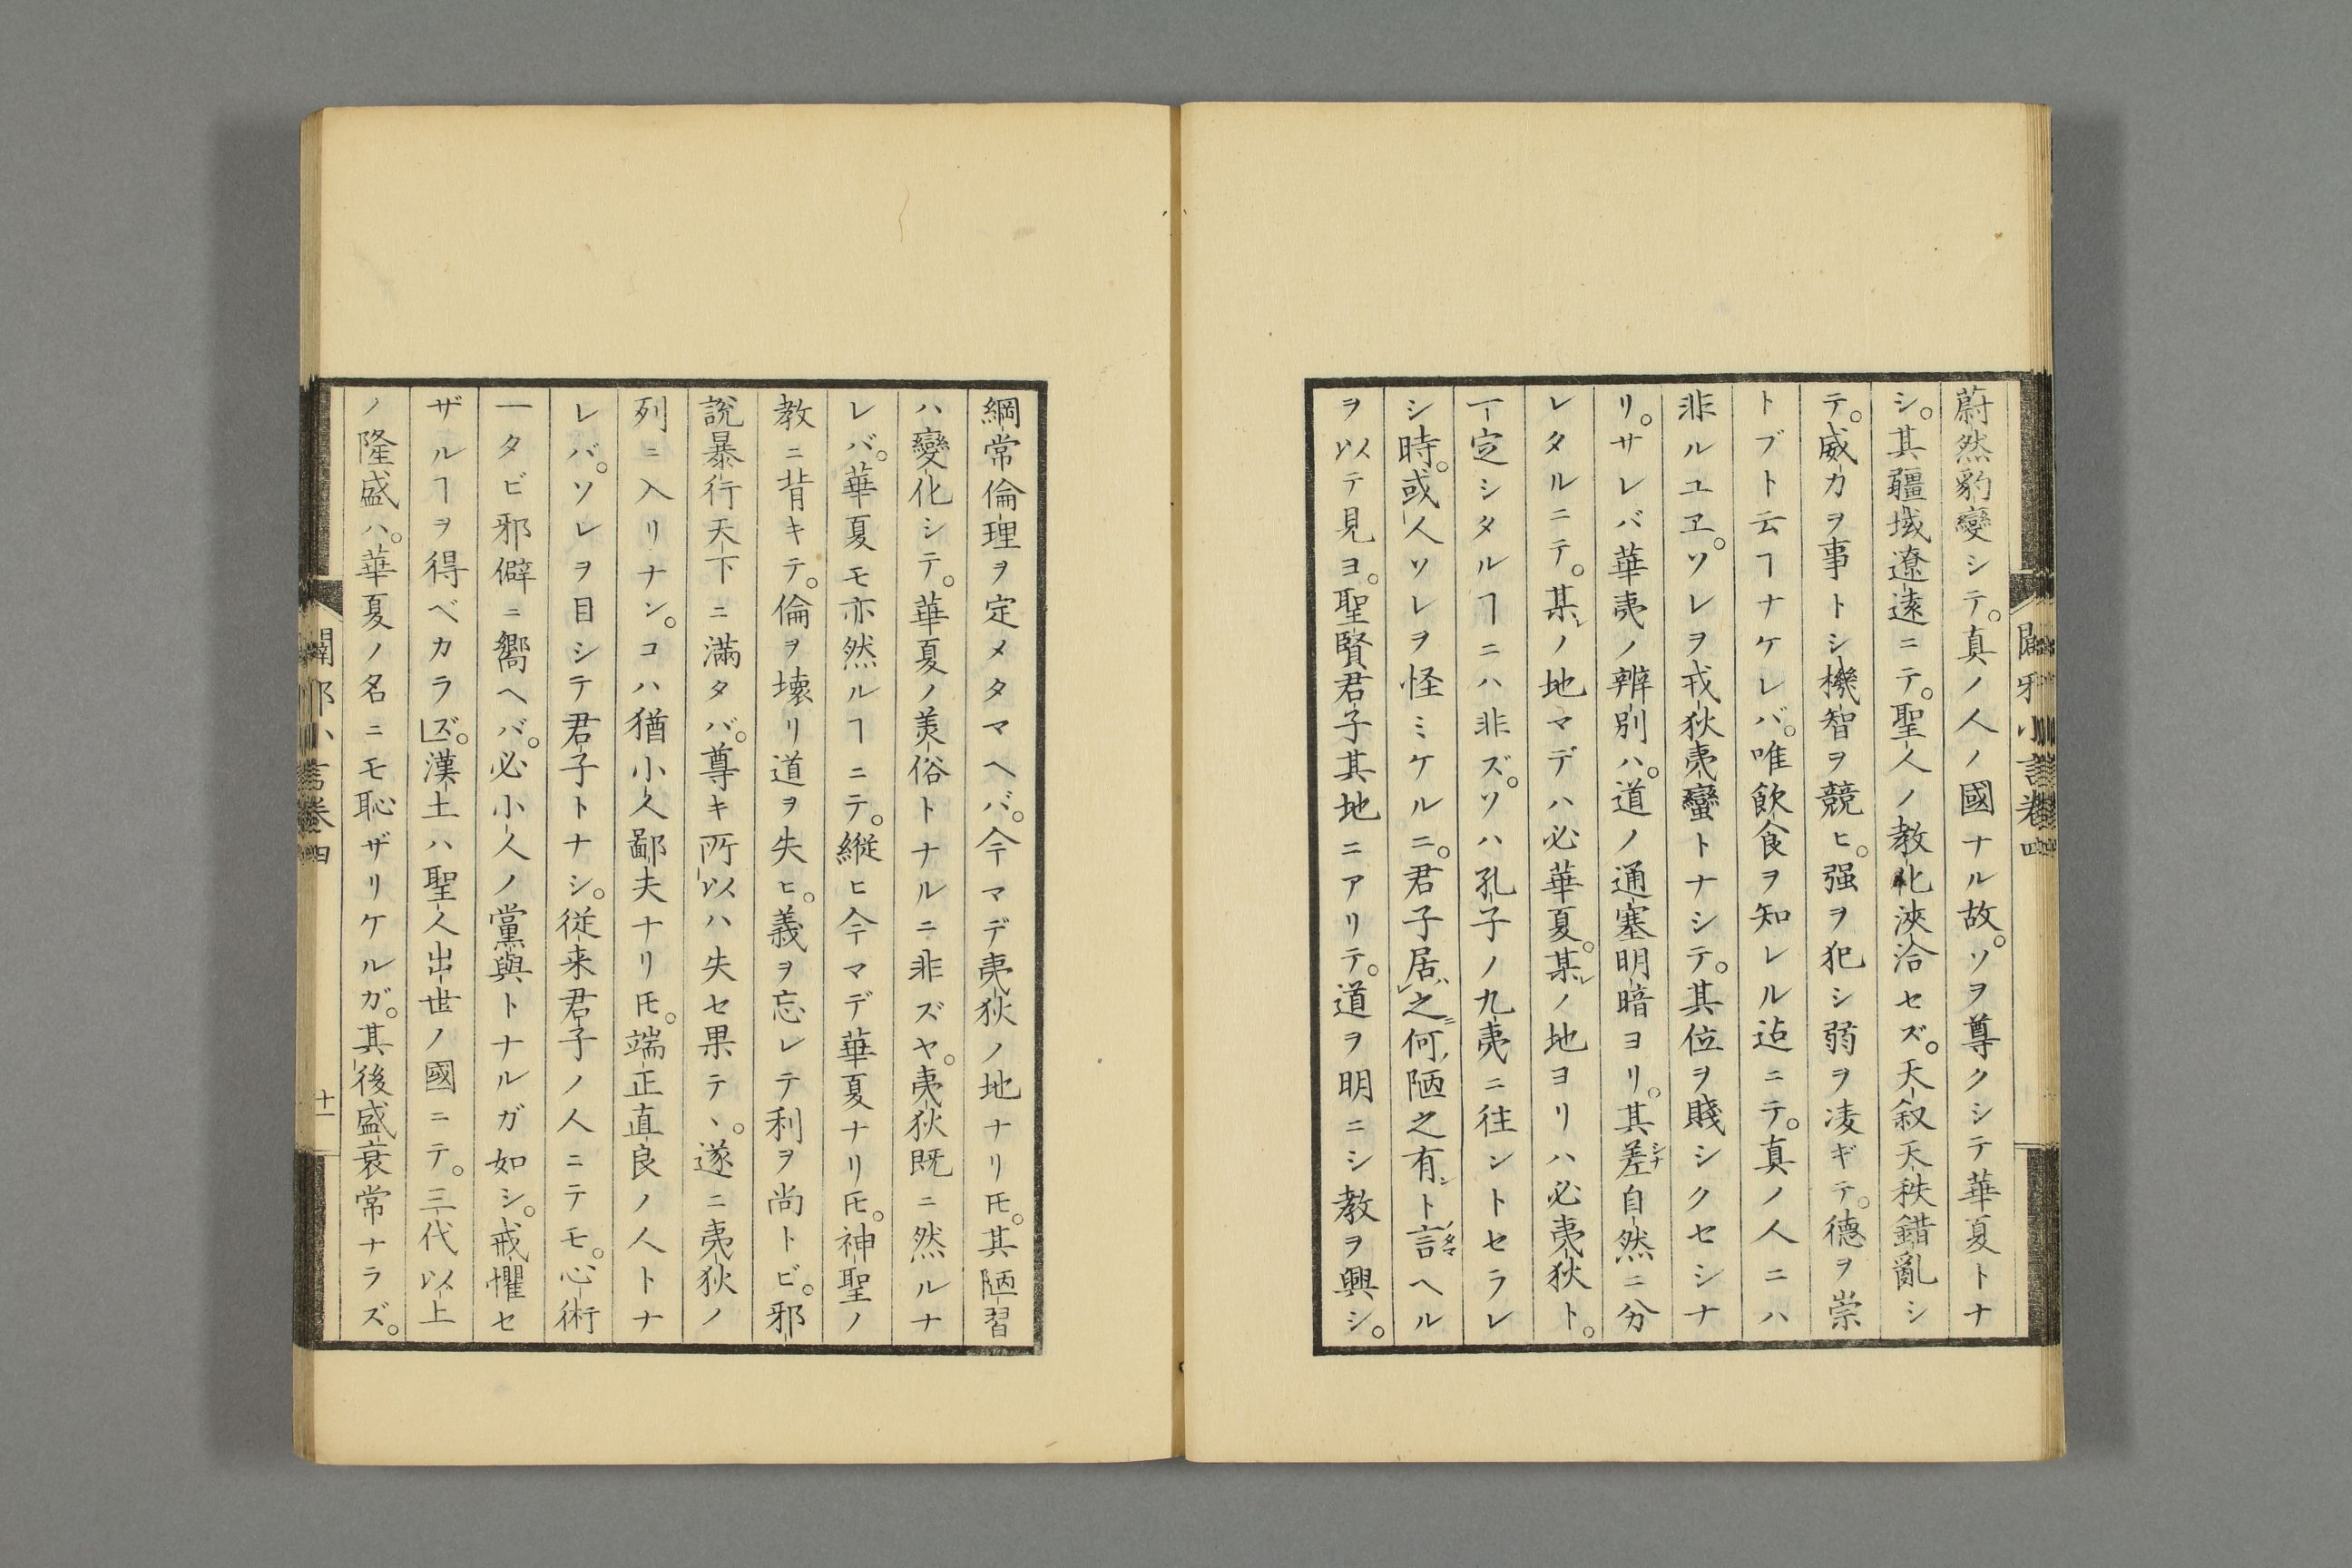 蔚然豹變シテ。真ノ人ノ國ナル故。ソヲ尊クシテ華夏トナ
シ。其疆域遼遠ニテ。聖人ノ教化浹洽セズ。天叙天秩錯亂シ
テ。威力ヲ事トシ機智ヲ競ヒ。强ヲ犯シ弱ヲ凌ギテ。德ヲ崇
トブト云ヿナケレバ。唯飲食ヲ知レル迠ニテ。真ノ人ニハ
非ルユヱ。ソレヲ戎狄夷蠻トナシテ。其位ヲ賤シクセシナ
リ。サレバ華夷ノ辨別ハ。道ノ通塞明暗ヨリ。其差シナ自然ニ分
レタルニテ。某レノ地マデハ必華夏。某レノ地ヨリハ必夷狄ト。
一定シタルヿニハ非ズ。ソハ孔子ノ九夷ニ往ントセラレ
シ時。或人ソレヲ怪ミケルニ。君子居レバ之ニ何ノ陋之有シト言ノタマヘル
ヲ以テ見ヨ。聖賢君子其地ニアリテ。道ヲ明ニシ教ヲ興シ。
闢邪小言卷四
綱常倫理ヲ定メタマヘバ。今マデ夷狄ノ地ナリ𪜈。其陋習
ハ變化シテ。華夏ノ美俗トナルニ非ズヤ。夷狄既ニ然ルナ
レバ。華夏モ亦然ルヿニテ。縦ヒ今マデ華夏ナリ𪜈。神聖ノ
教ニ背キテ。倫ヲ壊リ道ヲ失ヒ。義ヲ忘レテ利ヲ尚トビ。邪
說暴行天下ニ滿タバ。尊キ所以ハ失セ果テヽ。遂ニ夷狄ノ
列ニ入リナン。コハ猶小人鄙夫ナリ𪜈。端正直良ノ人トナ
レバ。ソレヲ目シテ君子トナシ。従来君子ノ人ニテモ。心術
一タビ邪僻ニ嚮ヘバ。必小人ノ黨與トナルガ如シ。戒懼セ
ザルヿヲ得ベカラズ。」漢土ハ聖人出世ノ國ニテ。三代以上
ノ隆盛ハ。華夏ノ名ニモ恥ザリケルガ。其後盛衰常ナラズ。
闢邪小言卷四
十一